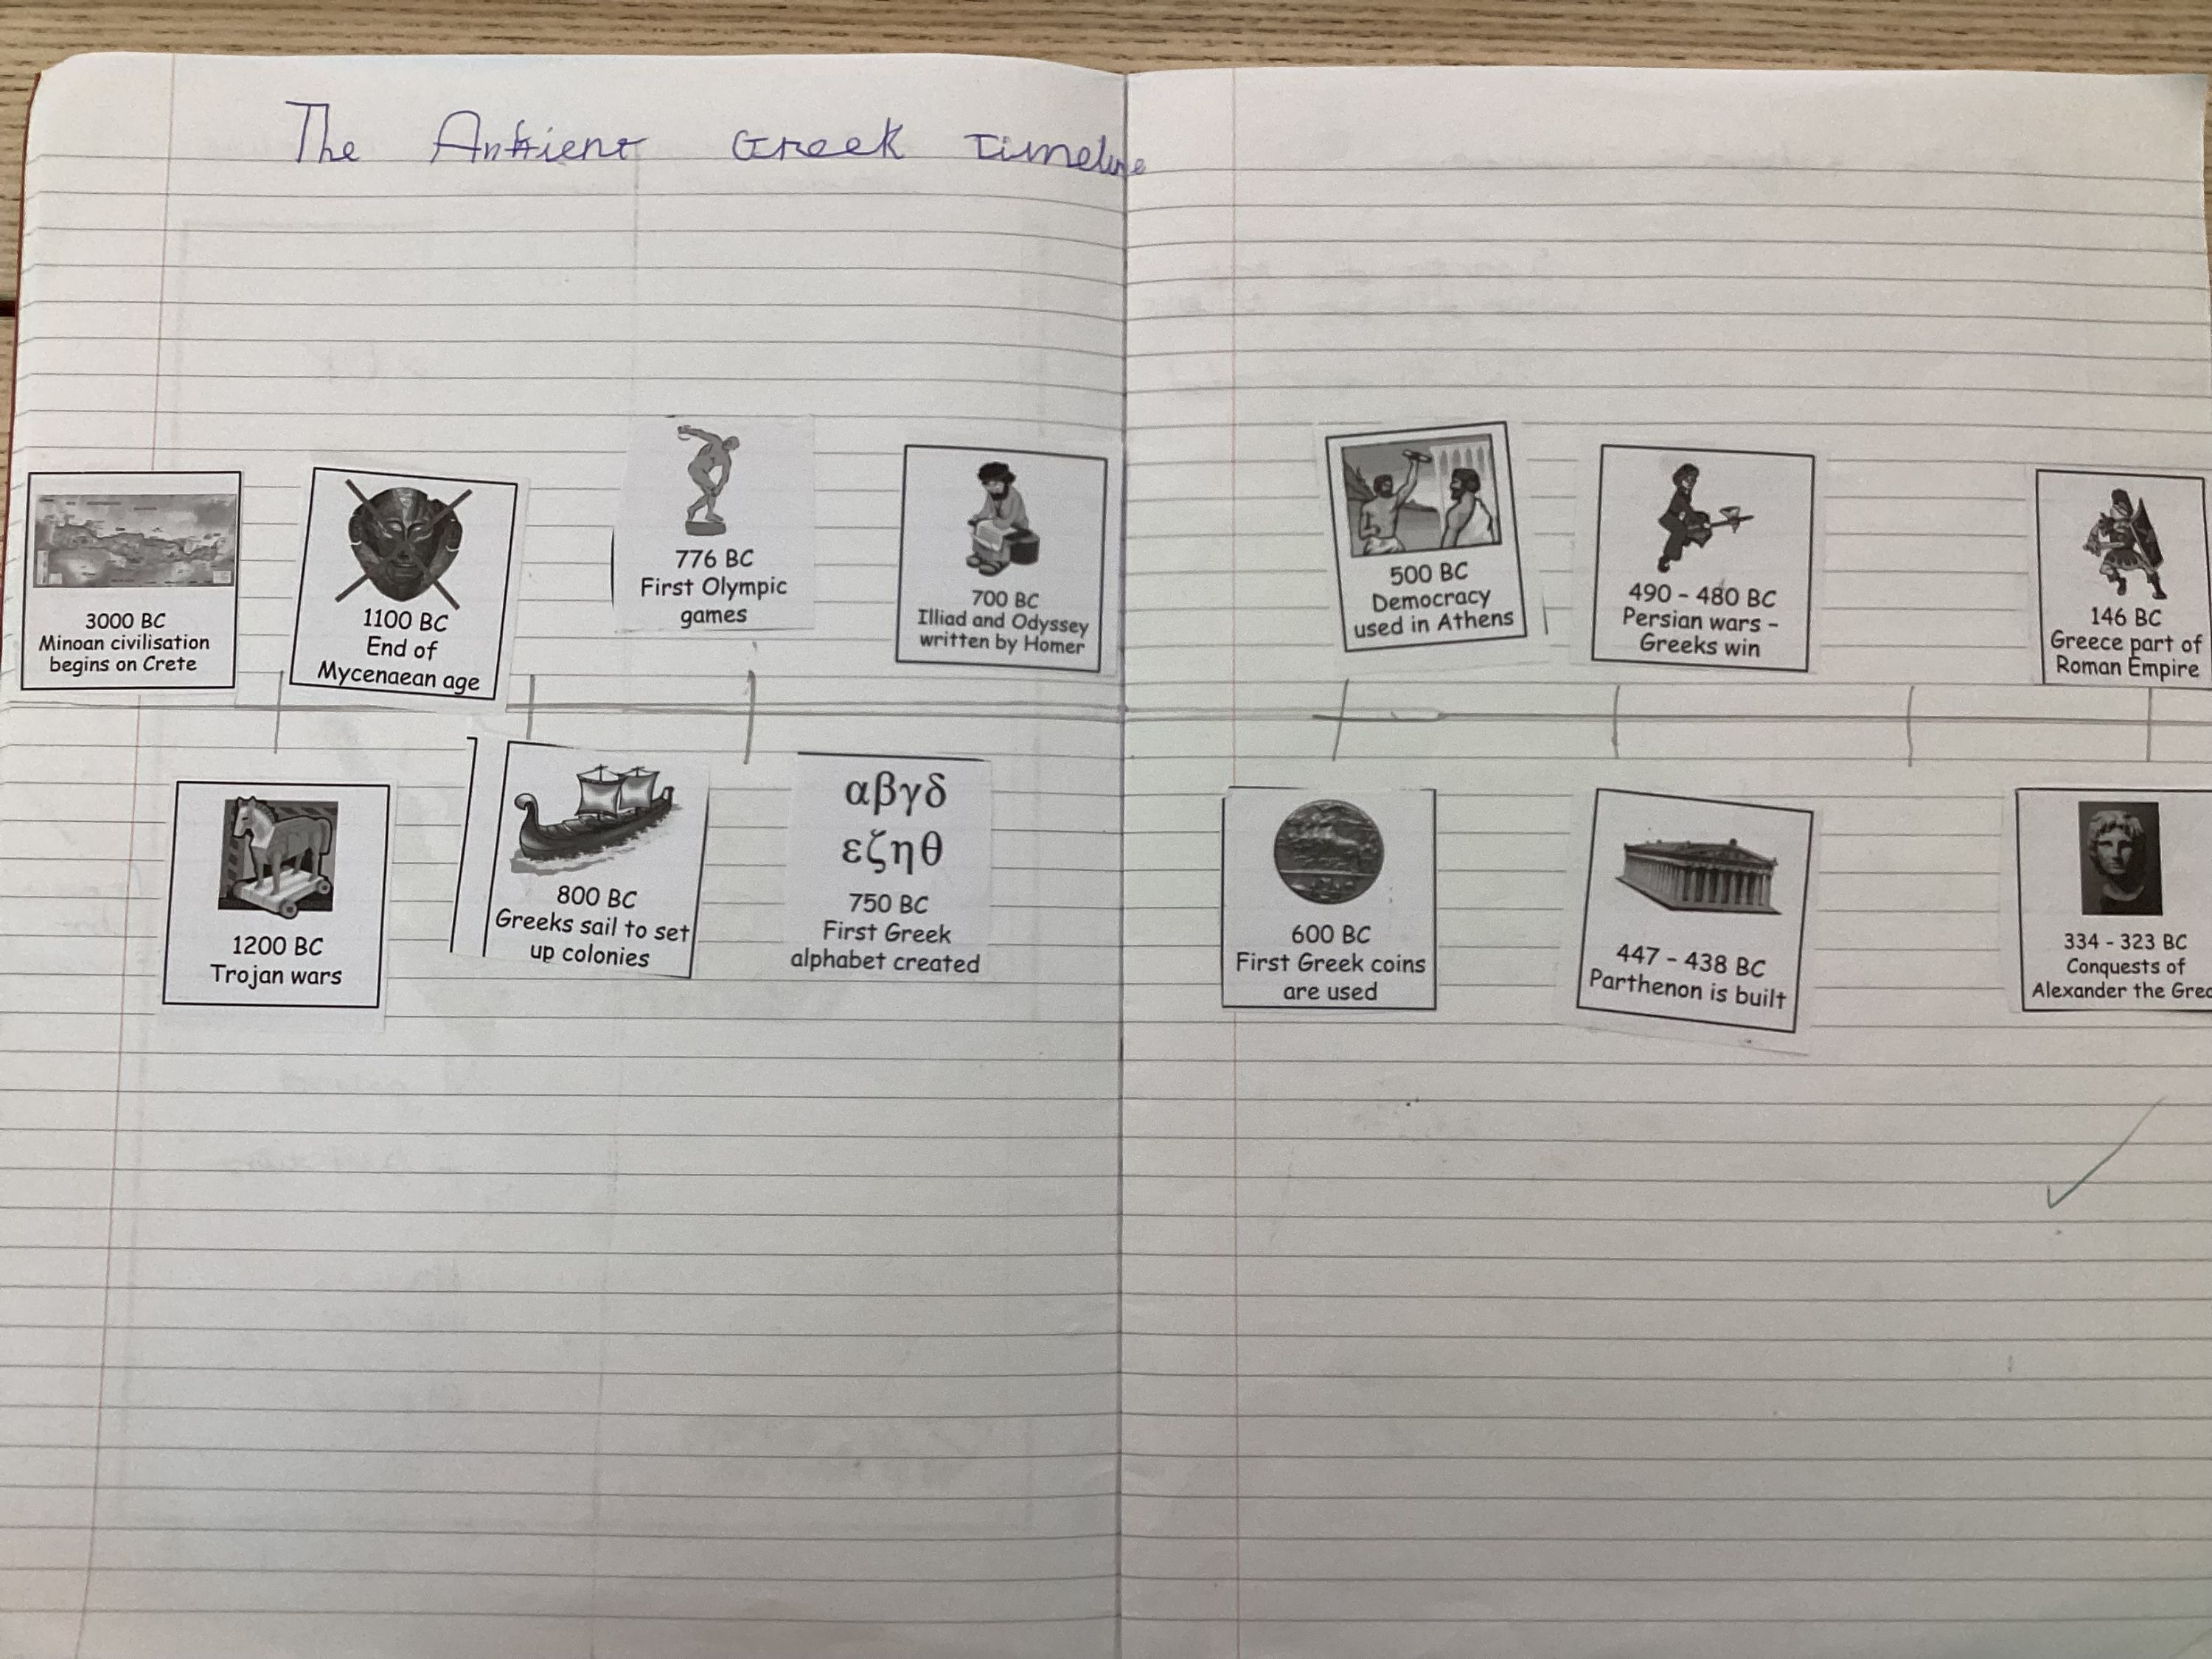 The Ankient Greek Timeline
3000 BC
Minoan civilisation
begins on Crete
1100 BC
End of
Mycenaean age
776 BC
First Olympic
games
700 BC
Illiad and Odyssey
written by Homer
500 BC
Democracy
used in Athens
490 - 480 BC
Persian wars -
Greeks win
146 BC
Greece part of
Roman Empire
1200 BC
Trojan wars
800 BC
Greeks sail to set
up colonies
αβγδ
εζηθ
750 BC
First Greek
alphabet created
600 BC
First Greek coins
are used
447 - 438 BC
Parthenon is built
334 - 323 BC
Conquests of
Alexander the Grea